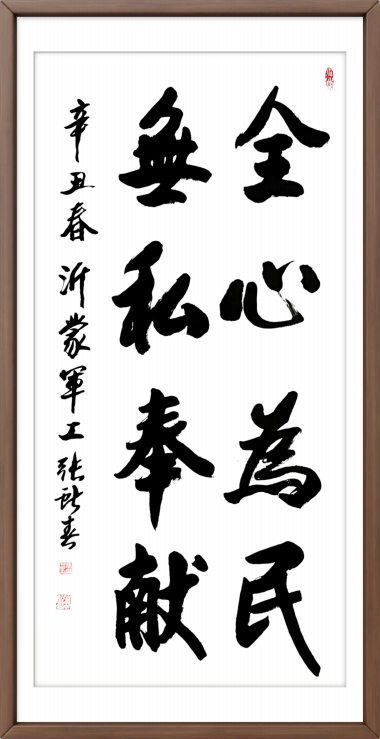 全心為民
無私奉献
辛丑春沂蒙軍工張啟春